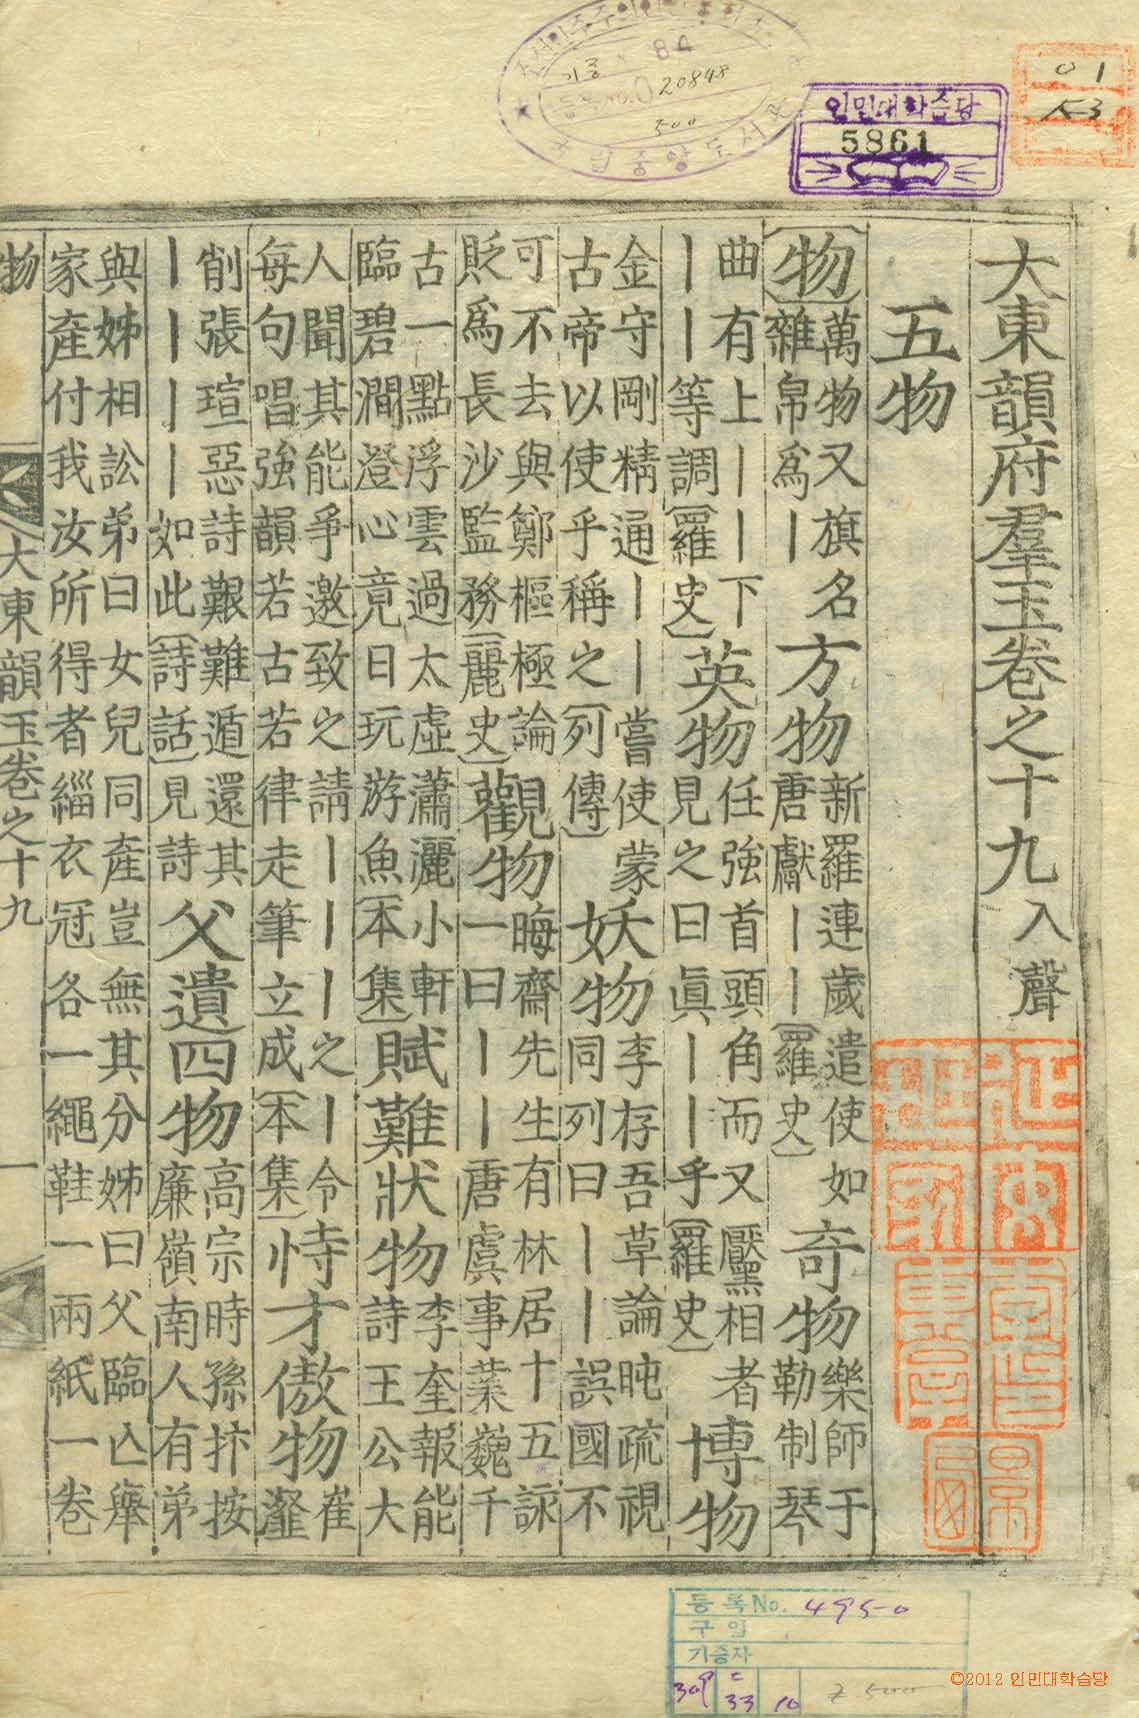 大東韻府羣玉卷之十九 入聲
五物
[物]萬物又旗名雜帛爲丨 方物新羅連歲遣使如唐獻丨丨(羅史) 奇物樂師于勒制琴
曲有上丨丨下丨丨等調(羅史) 英物任強首頭角而又黶相者見之曰眞丨丨乎(羅史) 博物
金守剛精通丨丨嘗使蒙古帝以使乎稱之(列傳) 妖物李存吾草論旽疏視同列曰丨丨誤國不
可不去與鄭樞極論貶爲長沙監務(麗史) 觀物晦齋先生有林居十五詠一曰丨丨唐虞事業巍千
古一點浮雲過太虛瀟灑小軒臨碧澗澄心竟日玩游魚(本集) 賦難狀物李奎報能詩王公大
人聞其能爭邀致之請丨丨丨之丨令每句唱強韻若古若律走筆立成(本集) 恃才傲物崔瀣
削張瑄惡詩艱難遁還其丨丨丨丨如此(詩話)見詩 父遺四物高宗時孫抃按廉嶺南人有弟
與姊相訟弟曰女兒同產豈無其分姊曰父臨亾舉家產付我汝所得者緇衣冠各一繩鞋一兩紙一卷
物 大東韻玉卷之十九 一
기증
84
20848
500
인민대학습당
5861
01
53
등록No. 4950
구입
기증자
309
33
10
500
©2012 인민대학습당